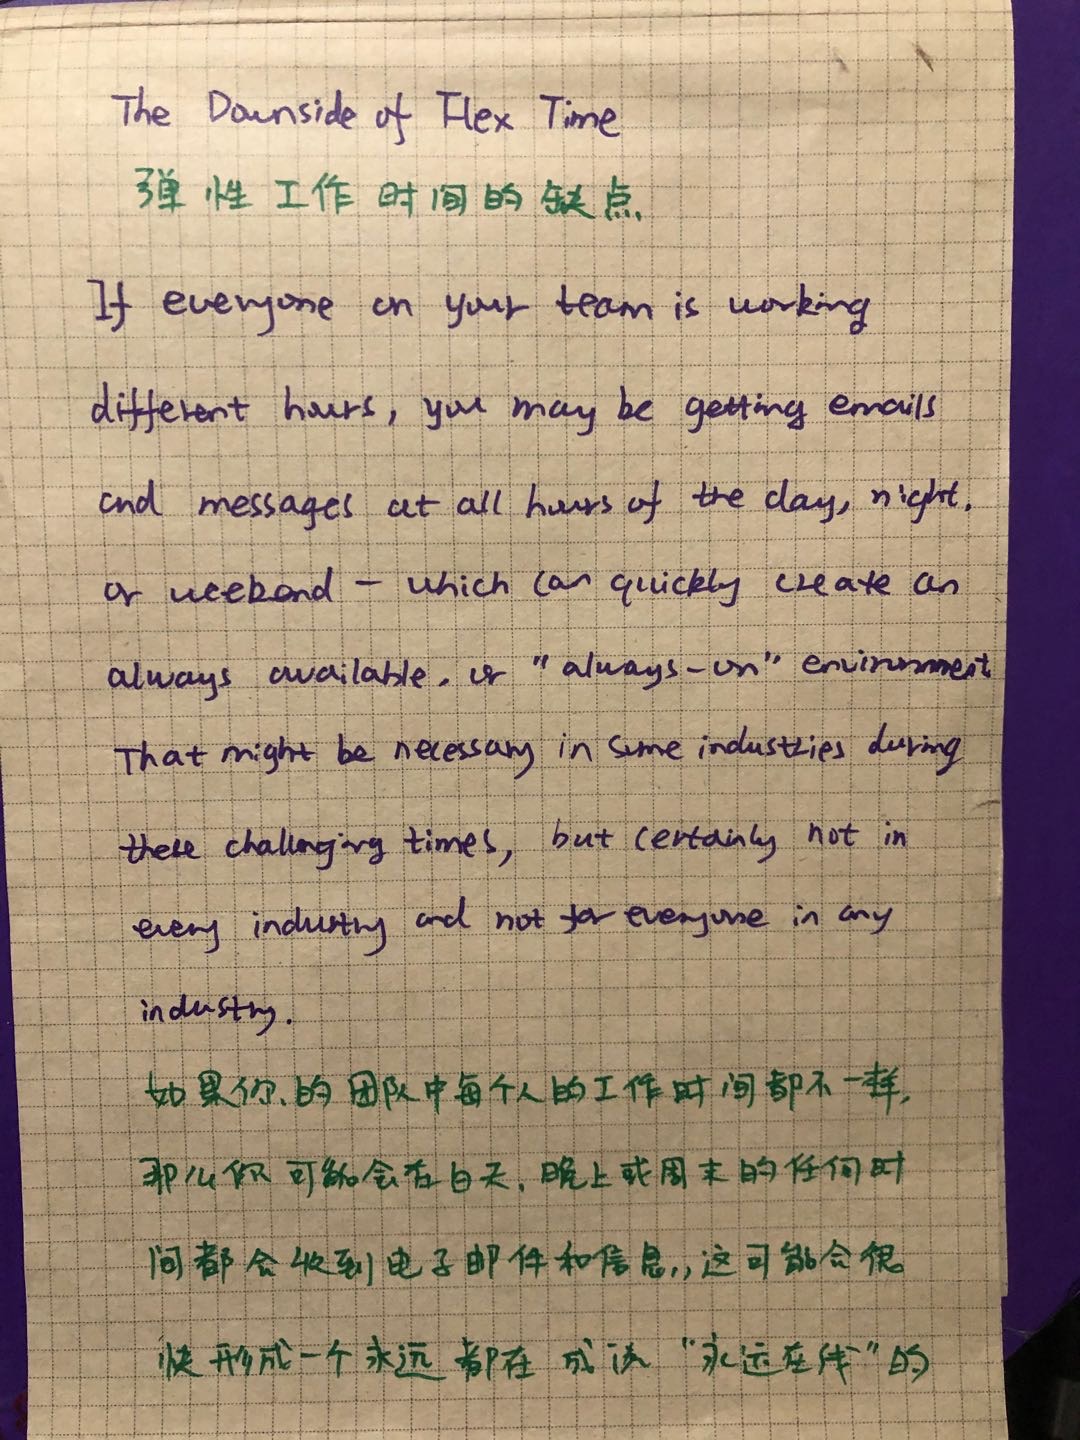 The Downside of Flex Time
弹性工作时间的缺点
If everyone on your team is working
different hours, you may be getting emails
and messages at all hours of the day, night,
or weekend – which can quickly create an
always available, or "always-on" environment
That might be necessary in some industries during
these challenging times, but certainly not in
every industry and not for everyone in any
industry.
如果你的团队中每个人的工作时间都不一样,
那么你可能会在白天,晚上或周末的任何时
间都会收到电子邮件和信息,,这可能会很
快形成一个永远都在 或说 "永远在线"的